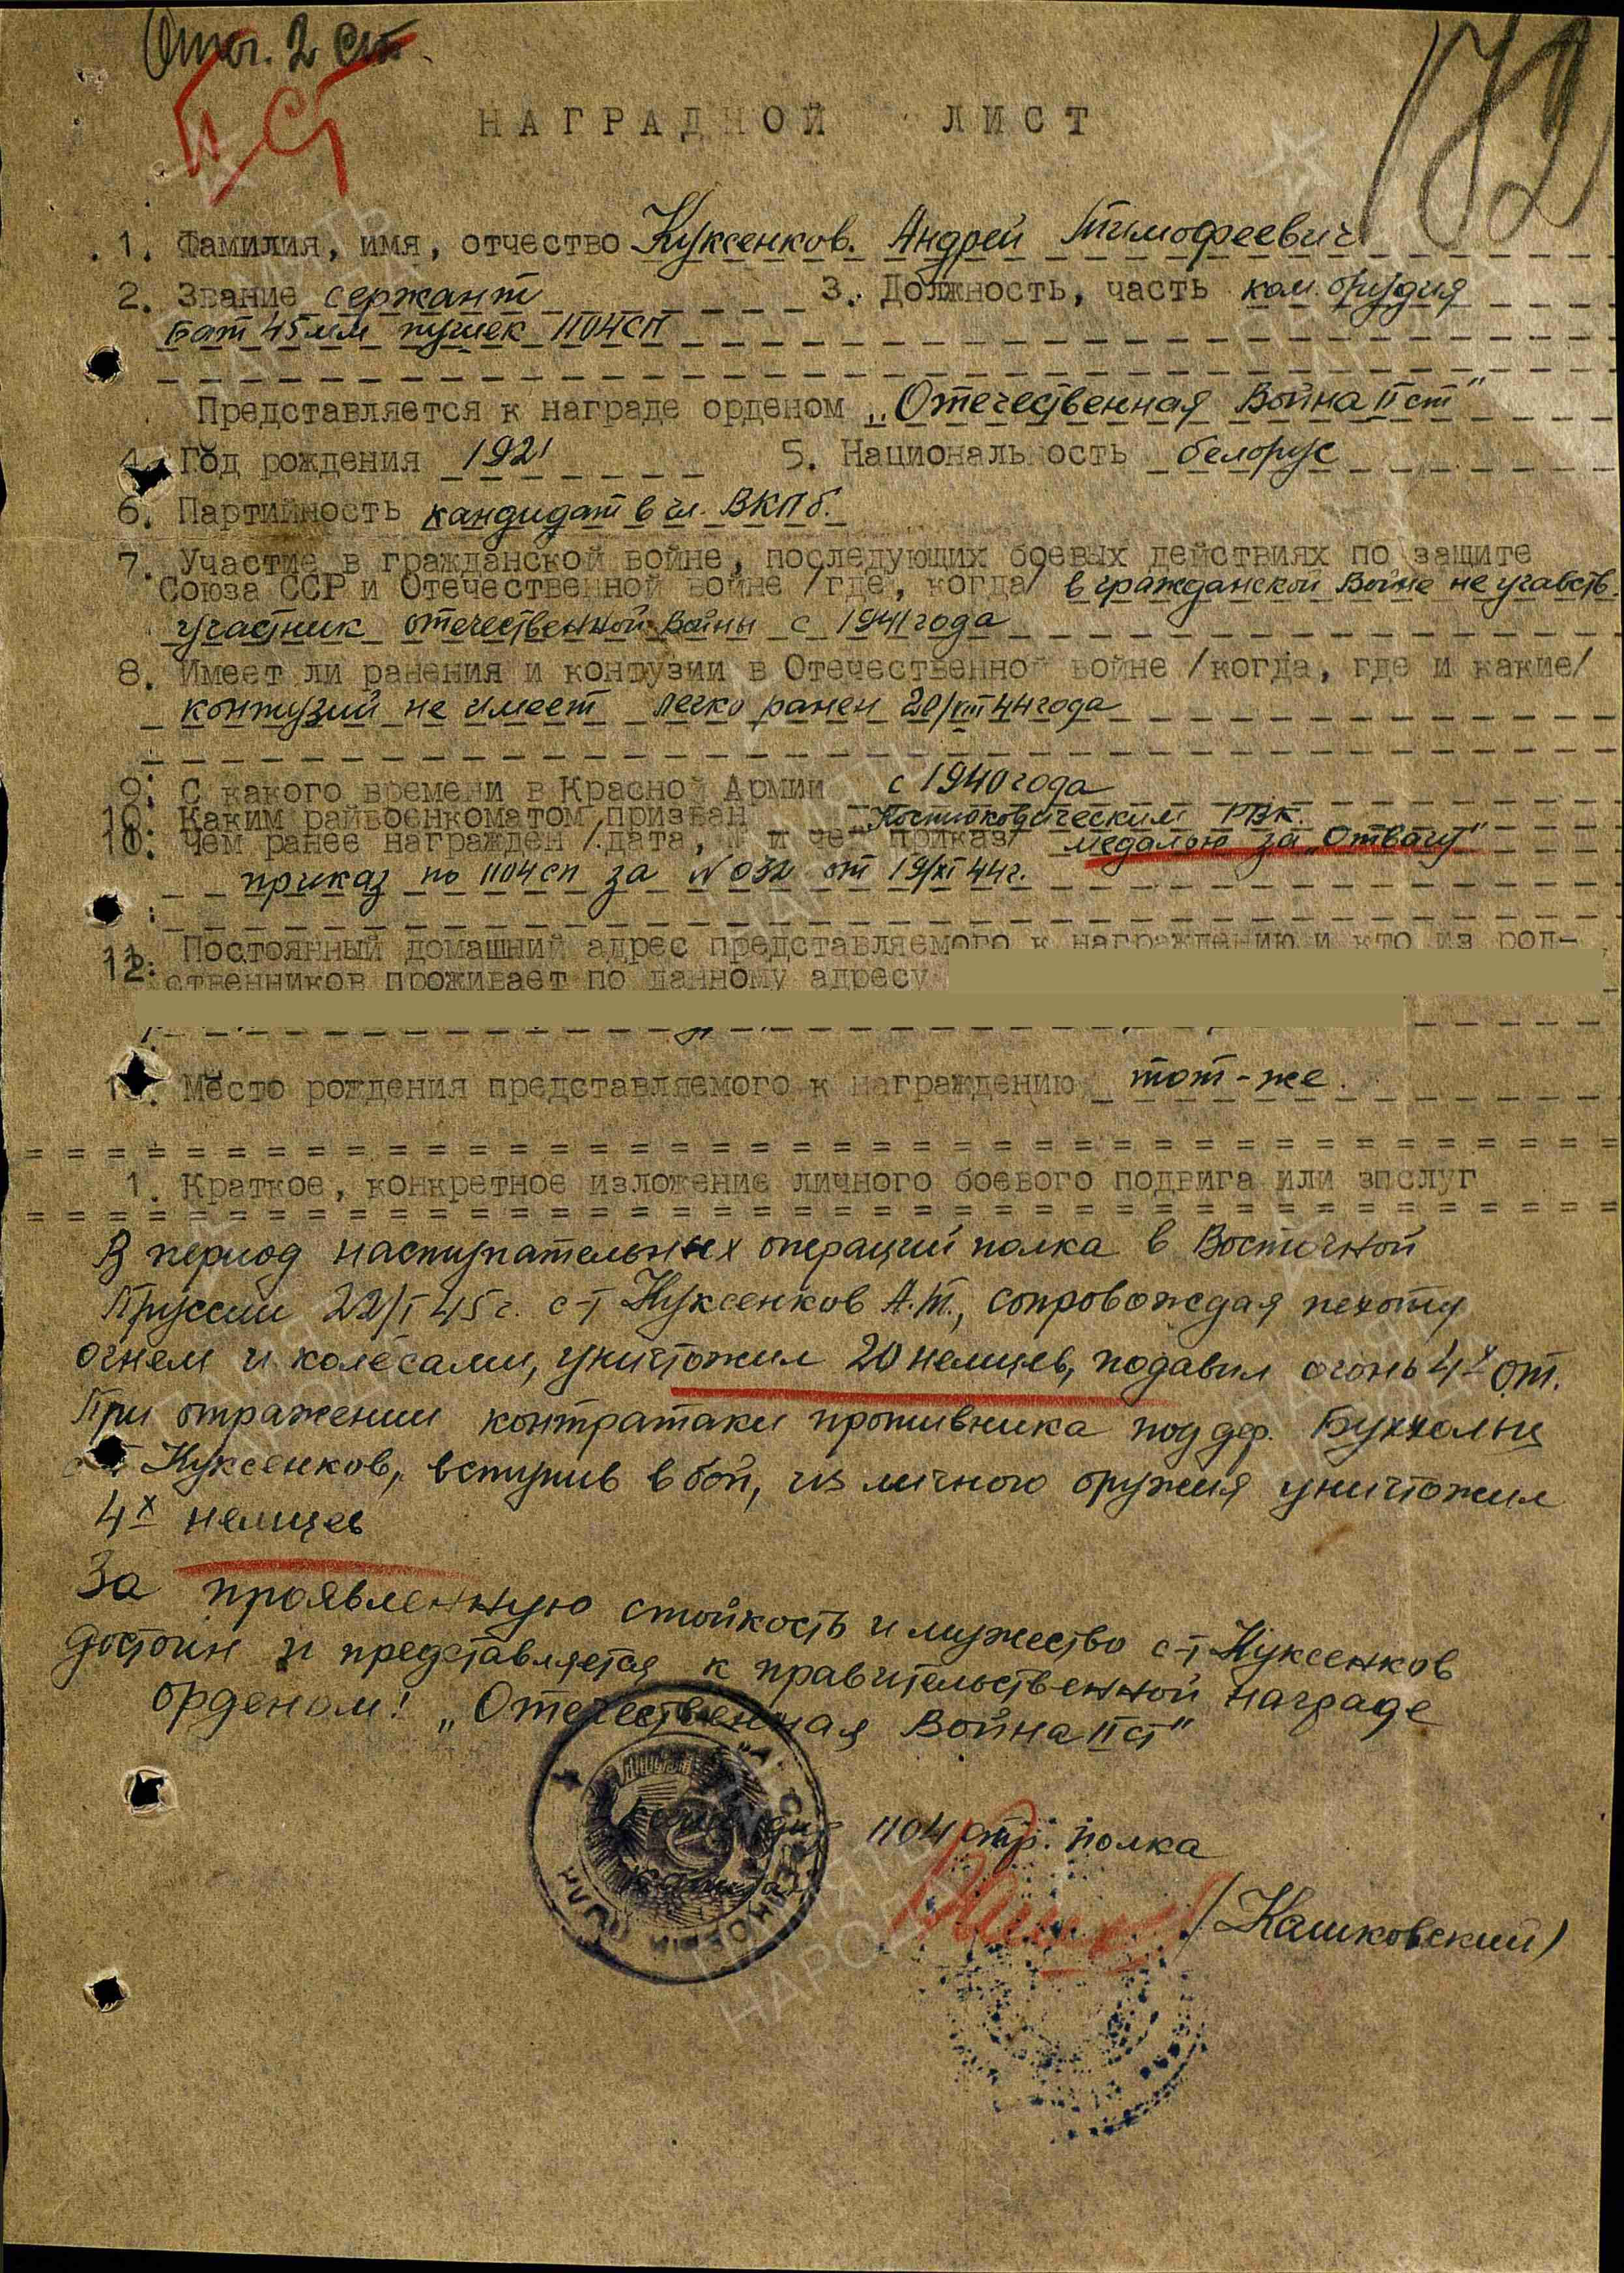 Отеч. 2 ст.
II ст
172
НАГРАДНОЙ ЛИСТ
1. Фамилия, имя, отчество Куксенков. Андрей Тимофеевич
2. Звание сержант 3. Должность, часть ком. орудия
Бат 45мм пушек 1104 СП
Представляется к награде орденом „Отечественная Война II ст"
4. Год рождения 1921 5. Национальность белорус
6. Партийность кандидат в чл. ВКПб.
7. Участие в гражданской войне, последующих боевых действиях по защите
Союза ССР и Отечественной войне /где, когда/ в гражданской Войне не участв.
участник отечественной Войны с 1941 года
8. Имеет ли ранения и контузии в Отечественной войне /когда, где и какие/
контузий не имеет легко ранен 20/VIII 44 года
9. С какого времени в Красной Армии с 1940 года
10. Каким райвоенкоматом призван Костюковическим РВК.
10. Чем ранее награжден /дата, № и чей приказ/ медалью за „Отвагу"
приказ по 1104 сп за № 032 от 19/XI 44 г.
12. Постоянный домашний адрес представляемого к награждению и кто из род-
ственников проживает по данному адресу
Место рождения представляемого к награждению тот-же.
1. Краткое, конкретное изложение личного боевого подвига или заслуг
В период наступательных операций полка в Восточной
Пруссии 22/I 45 г. с-т Куксенков А.Т., сопровождая пехоту
огнем и колёсами, уничтожил 20 немцев, подавил огонь 4х от.
При отражении контратаки противника под дер. Буххольц
с-т Куксенков, вступив в бой, из личного оружия уничтожил
4х немцев
За проявленную стойкость и мужество с-т Куксенков
достоин и представляется к правительственной награде
орденом! „Отечественная Война II ст"
командир 1104 стр. полка
/Кашковский/